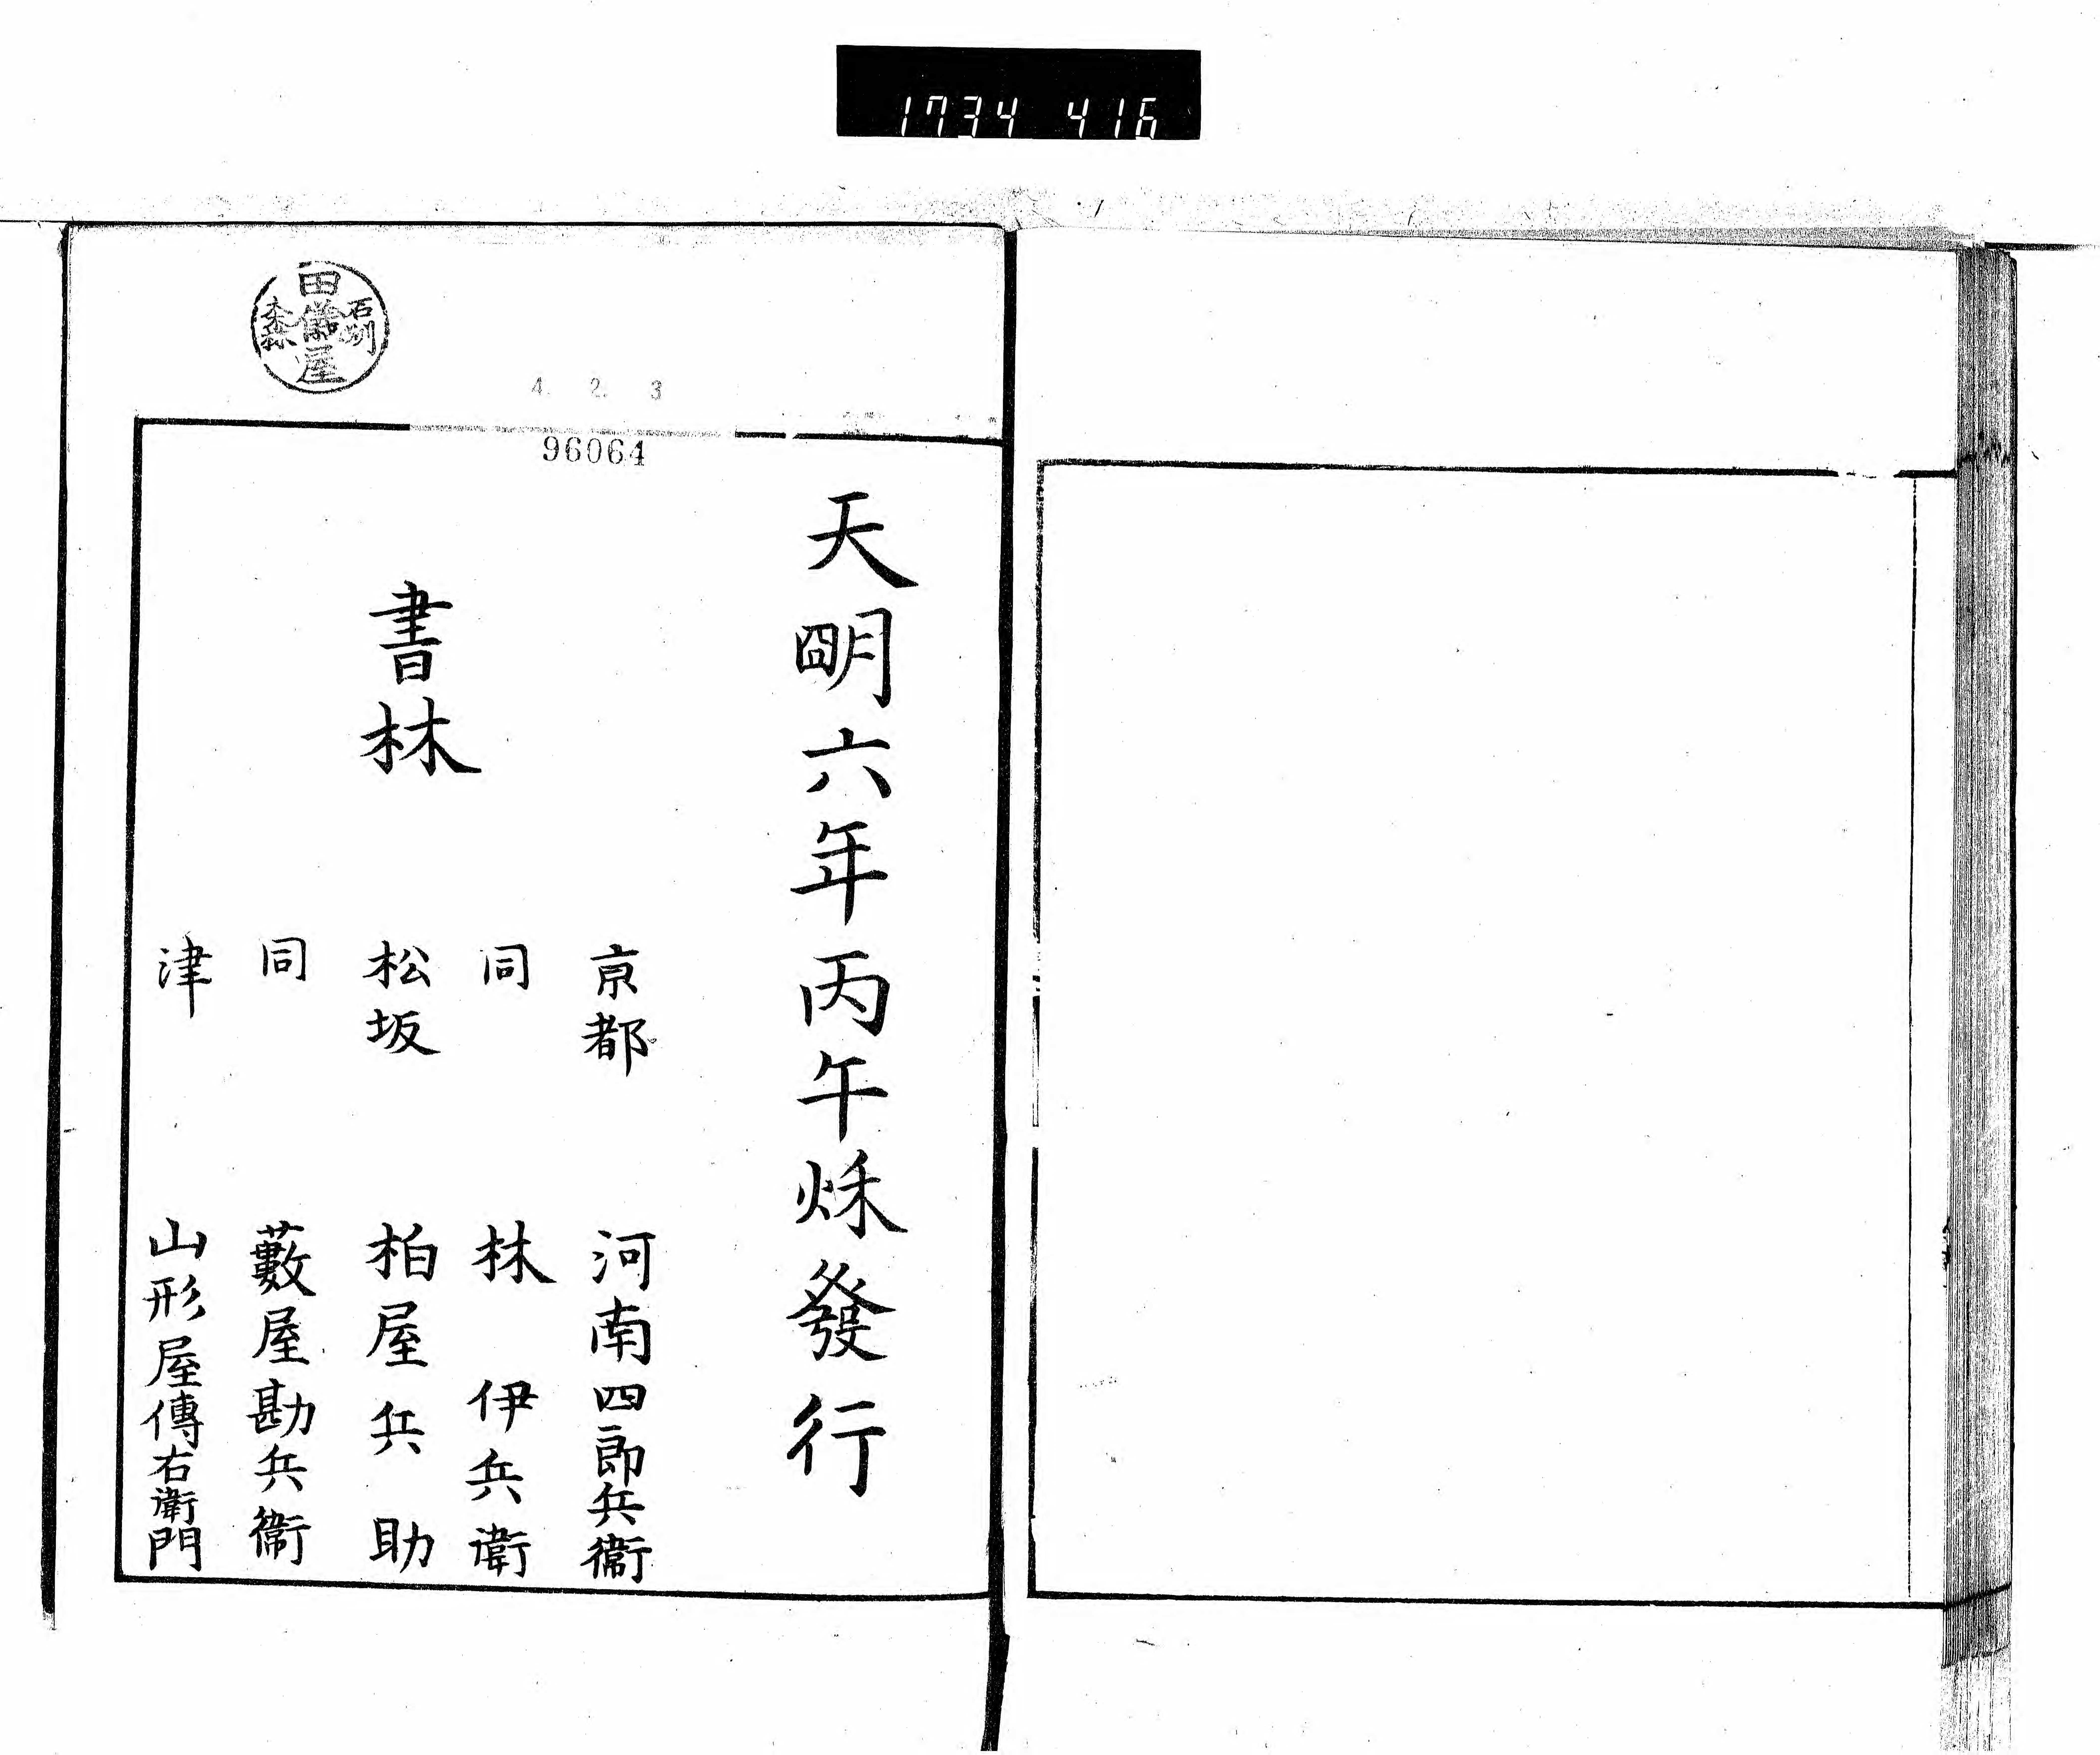 1734 416
天明六年丙午烁發行
書林
京都 河南四郎兵衞
同 林 伊兵衛
松坂 柏屋兵助
同 藪屋勘兵衞
津 山形屋傳右衛門
4. 2. 3
96064
石州
田儀屋